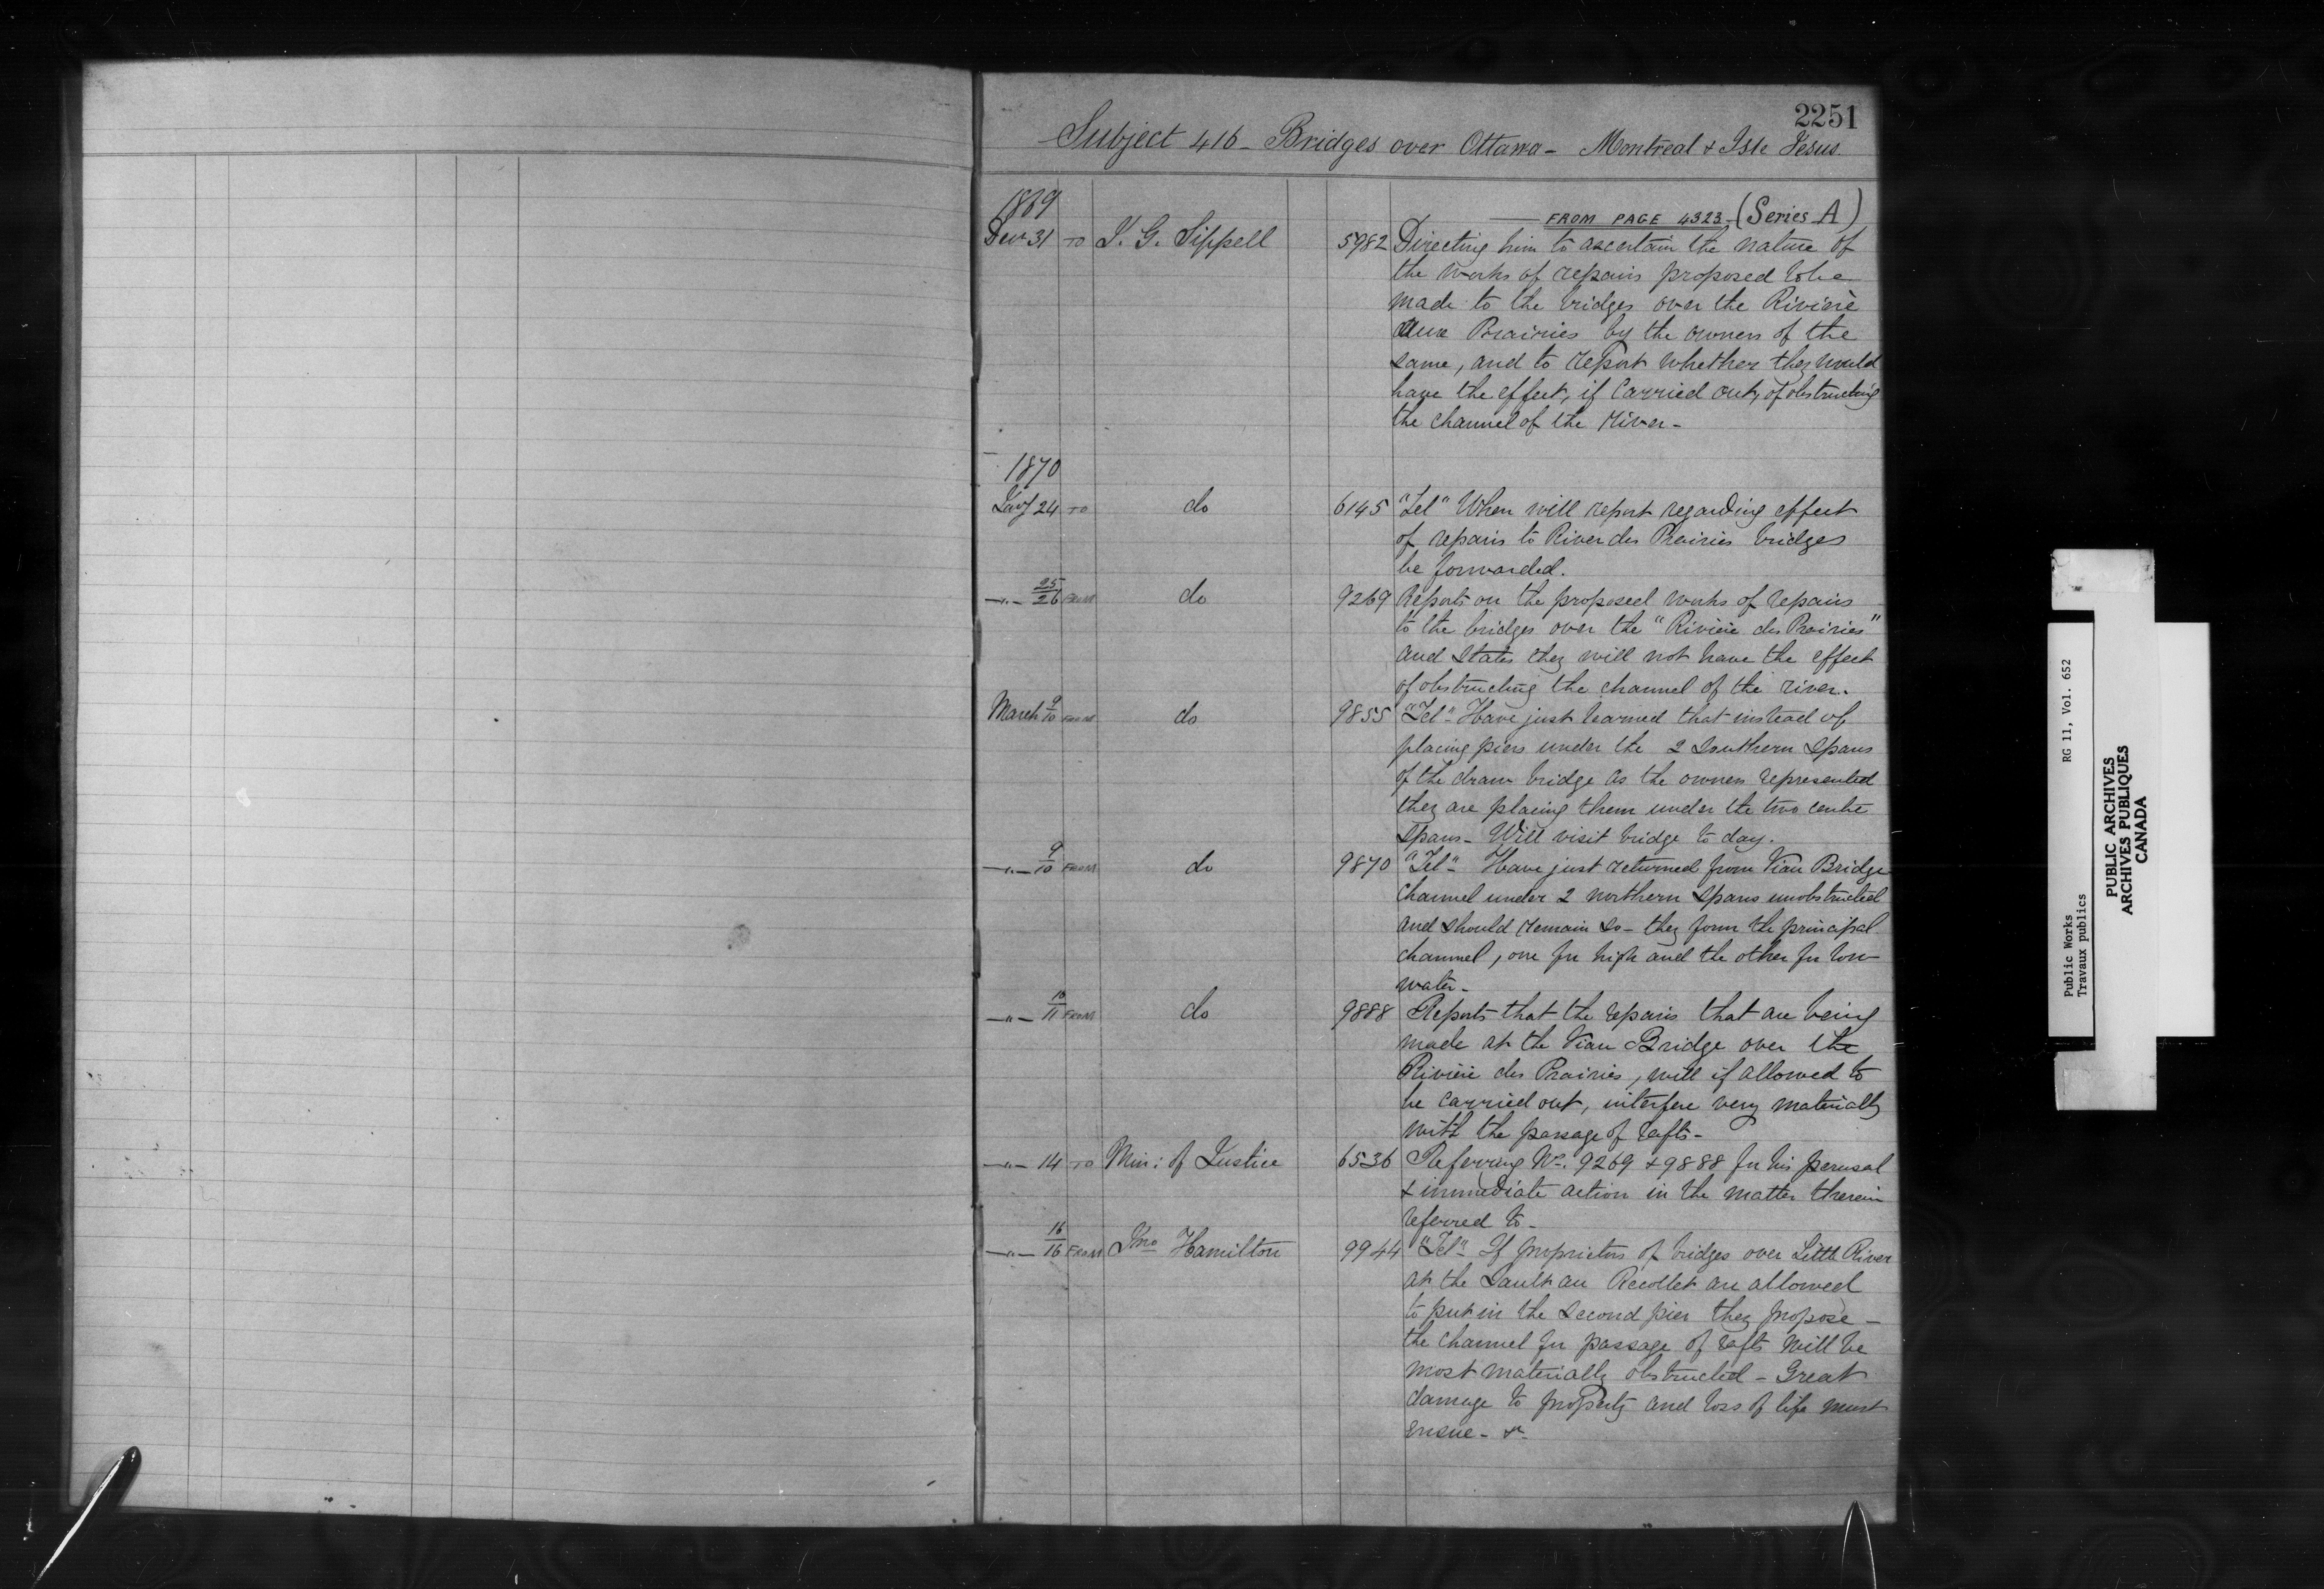 2251
Subject 416 - Bridges over Ottawa - Montreal & Isle Jesus.
1869
FROM PAGE 4323 - (Series A)
Decr 31 TO J. G. Sippell 5982 Directing him to ascertain the nature of
the works of repairs proposed to be
made to the bridges over the Rivière
aux Prairies by the owners of the
same, and to report whether they would
have the effect, if carried out, of obstructing
the channel of the River -
1870
Jany 24 TO do 6145 "Tel" When will report regarding effect
of repairs to River des Prairies bridges
be forwarded.
-"- 25/26 FROM do 9269 Reports on the proposed works of repairs
to the bridges over the "Rivière des Prairies"
and states they will not have the effect
of obstructing the channel of the river.
March 9/10 FROM do 9855 "Tel" - Have just learned that instead of
placing piers under the 2 southern spans
of the draw bridge as the owners represented
they are placing them under the two centre
spans - Will visit bridge to day.
-"- 9/10 FROM do 9870 "Tel" - Have just returned from Viau Bridge
channel under 2 northern spans unobstructed
and should remain so - they form the principal
channel, one for high and the other for low
water -
-"- 10/11 FROM do 9888 Reports that the repairs that are being
made at the Viau Bridge over the
Rivière des Prairies, will if allowed to
be carried out, interfere very materially
with the passage of rafts -
-"- 14 TO Min: of Justice 6536 Referring No. 9269 & 9888 for his perusal
& immediate action in the matter therein
referred to -
-"- 16/16 FROM Jno Hamilton 9944 "Tel" - If proprietors of bridges over Little River
at the Sault au Recollet are allowed
to put in the second pier they propose -
the channel for passage of rafts will be
most materially obstructed - Great
damage to property and loss of life must
ensue - &c
Public Works
Travaux publics
RG 11, Vol. 652
PUBLIC ARCHIVES
ARCHIVES PUBLIQUES
CANADA